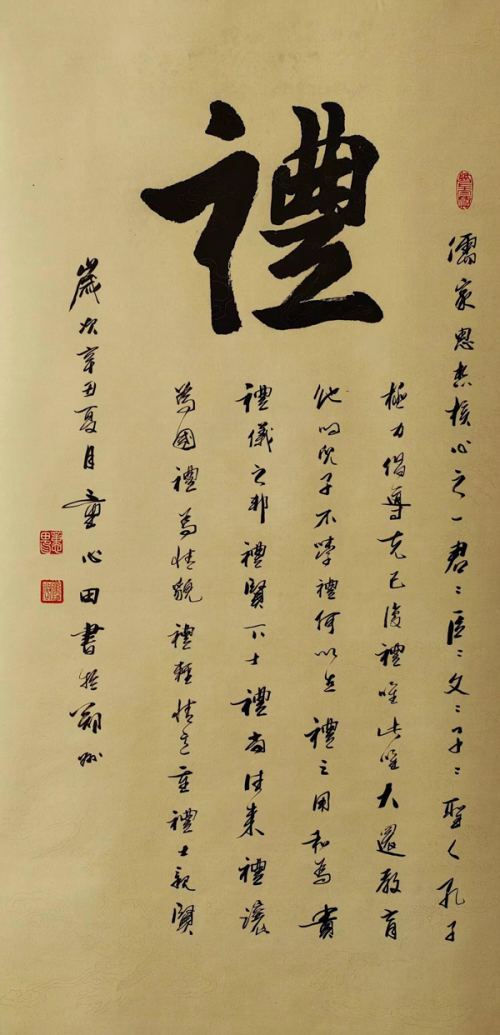 禮
儒家思想核心之一君〻臣〻父〻子〻聖人孔子
極力倡導克己復禮唯此唯大還教育
他的兒子不學禮何以立禮之用和為貴
禮儀之邦禮賢下士禮尚往來禮讓
為國禮為情貌禮輕情意重禮士親賢
歲次辛丑夏月童心田書於